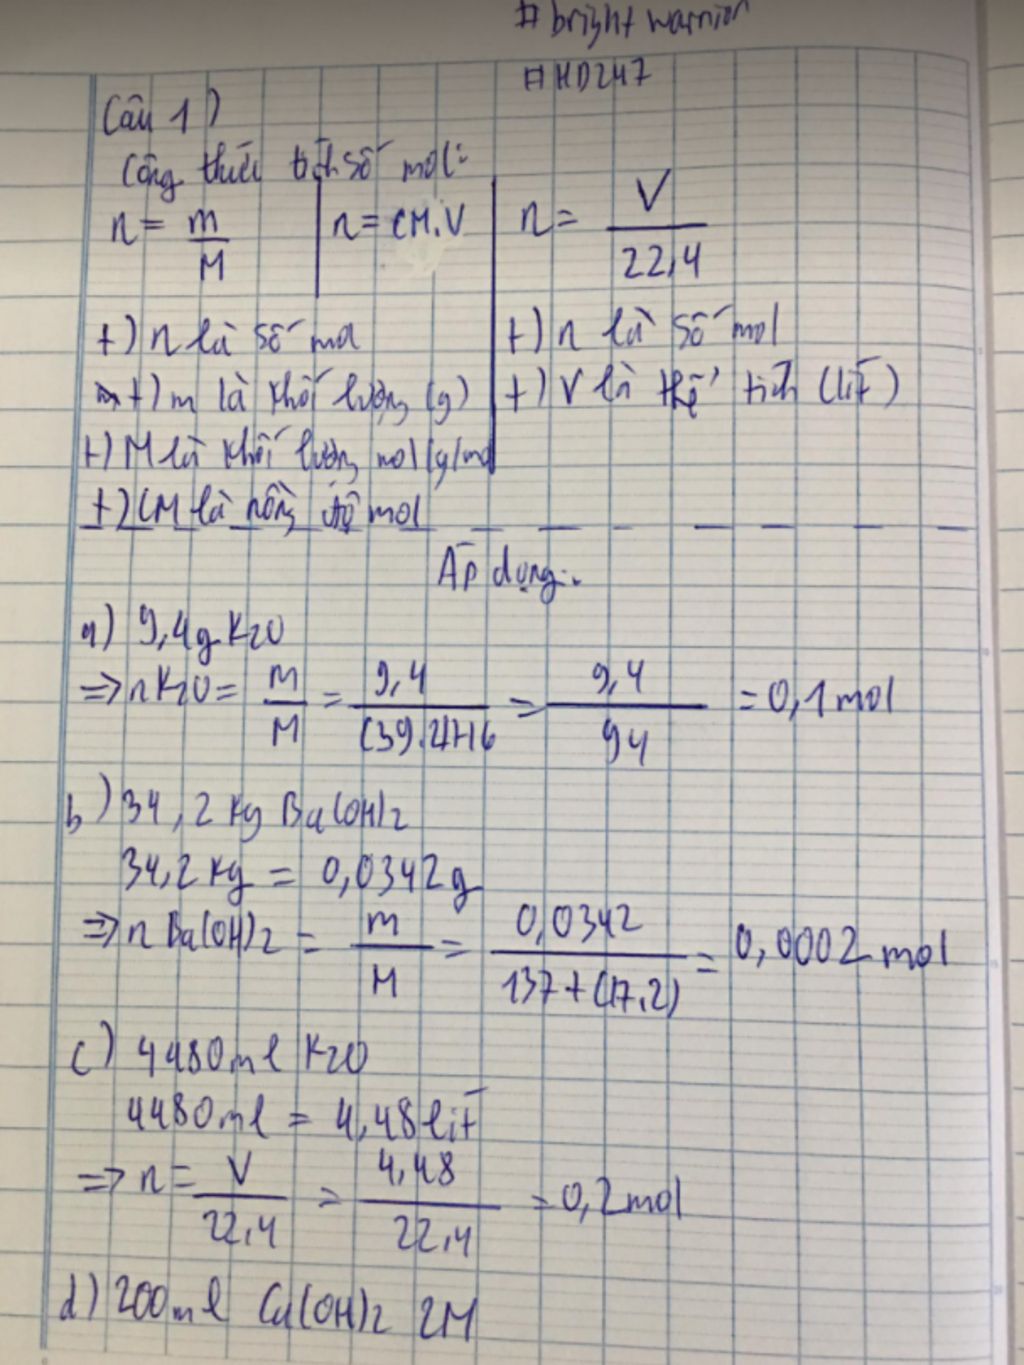 # bright warrior
# HD247
Câu 1)
Công thức tính số mol:
n = m/M | n = CM.V | n = V/22,4
+) n là số mol
+) m là khối lượng (g)
+) M là khối lượng mol (g/mol
+) CM là nồng độ mol
+) n là số mol
+) V là thể tích (lít)
Áp dụng:
a) 9,4g K2O
=> nK2O = m/M = 9,4/(39.2)+16 = 9,4/94 = 0,1 mol
b) 34,2 kg Ba(OH)2
34,2 kg = 0,0342g
=> n Ba(OH)2 = m/M = 0,0342/137+(17.2) = 0,0002 mol
c) 4480ml K2O
4480ml = 4,48 lít
=> n = V/22,4 = 4,48/22,4 = 0,2 mol
d) 200ml Ca(OH)2 2M